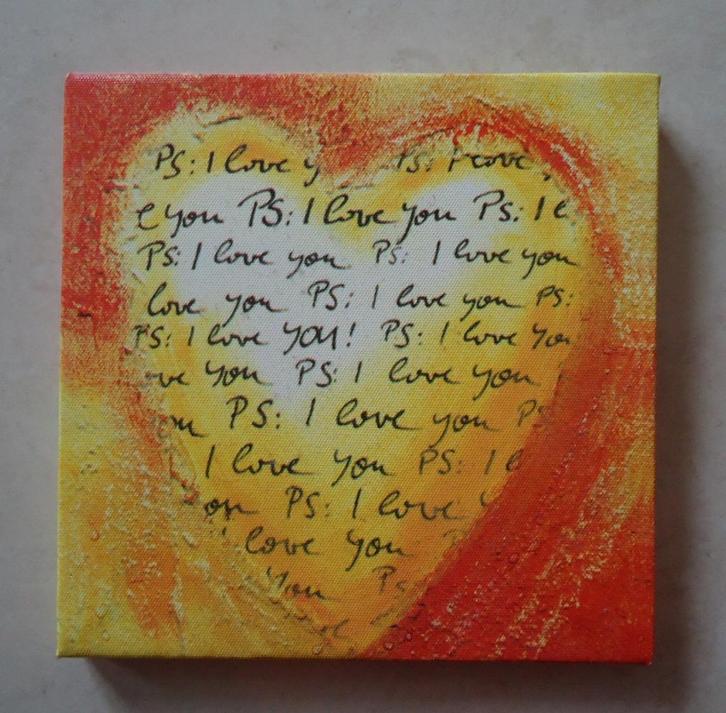 PS: I love y PS: I love
e you PS: I love you PS: I l
PS: I love you PS: I love you
love you PS: I love you PS:
PS: I love YOU! PS: I love You
ve you PS: I love you
PS: I love you PS
I love you PS: I l
ou PS: I love y
love you
You PS